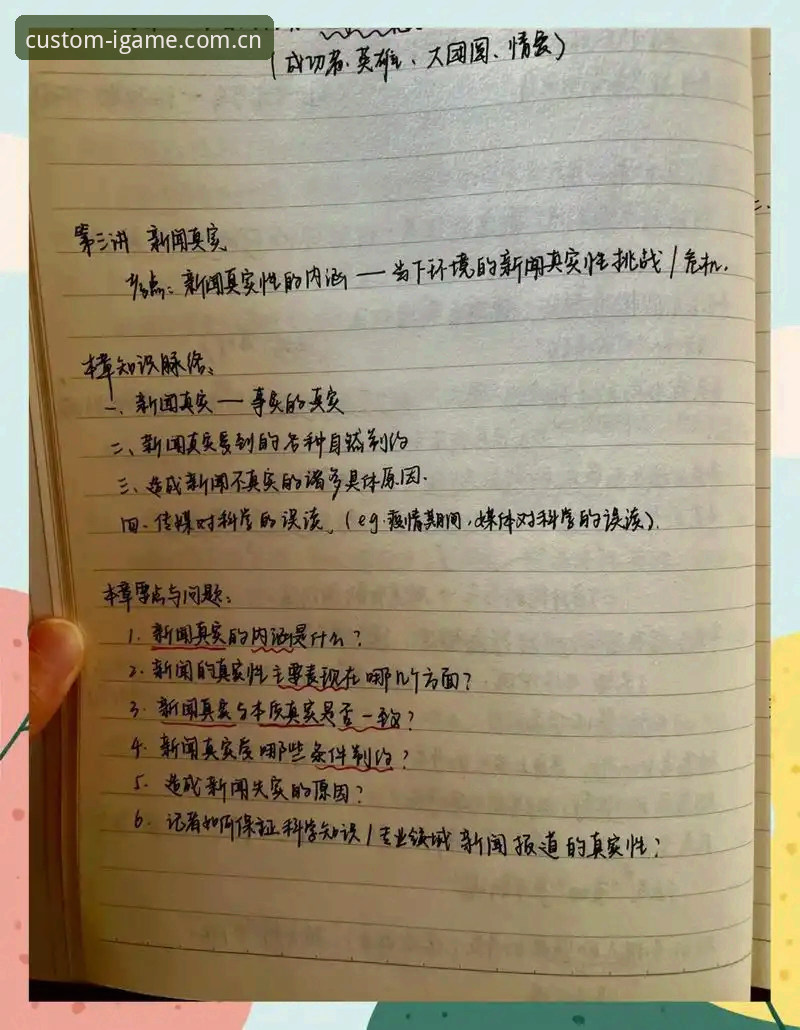 custom-igame.com.cn
(成功者、英雄、大团圆、情景)
第三讲 新闻真实
考点：新闻真实性的内涵 — 当下环境的新闻真实性挑战/危机.
本章知识脉络：
一、新闻真实 — 事实的真实
二、新闻真实受到的各种自然制约
三、造成新闻不真实的诸多具体原因.
四、传媒对科学的误读。(eg. 疫情期间,媒体对科学的误读).
本章要点与问题：
1. 新闻真实的内涵是什么?
2. 新闻的真实性主要表现在哪几个方面?
3. 新闻真实与本质真实是否一致?
4. 新闻真实受哪些条件制约?
5. 造成新闻失实的原因?
6. 记者如何保证科学知识/专业领域 新闻报道的真实性?